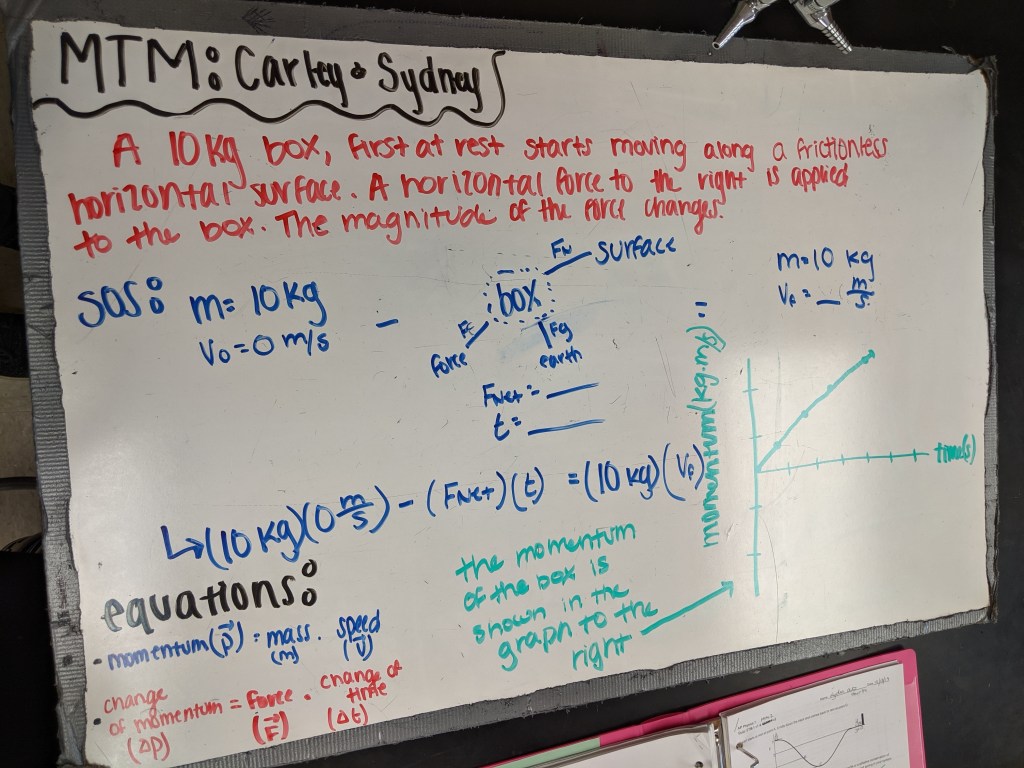 MTM: Carley & Sydney
A 10 kg box, first at rest starts moving along a frictionless
horizontal surface. A horizontal force to the right is applied
to the box. The magnitude of the force changes.
SOS:
m = 10 kg
V₀ = 0 m/s
-
FN
surface
box
force
Fg
earth
FNet = ___
t = ___
=
m = 10 kg
Vf = __ m/s
↳ (10 kg)(0 m/s) - (FNet)(t) = (10 kg)(Vf)
momentum (kg·m/s)
time(s)
the momentum
of the box is
shown in the
graph to the
right
equations:
• momentum (p⃗) = mass (m) · speed (v⃗)
• change of momentum (Δp) = force (F⃗) · change of time (Δt)